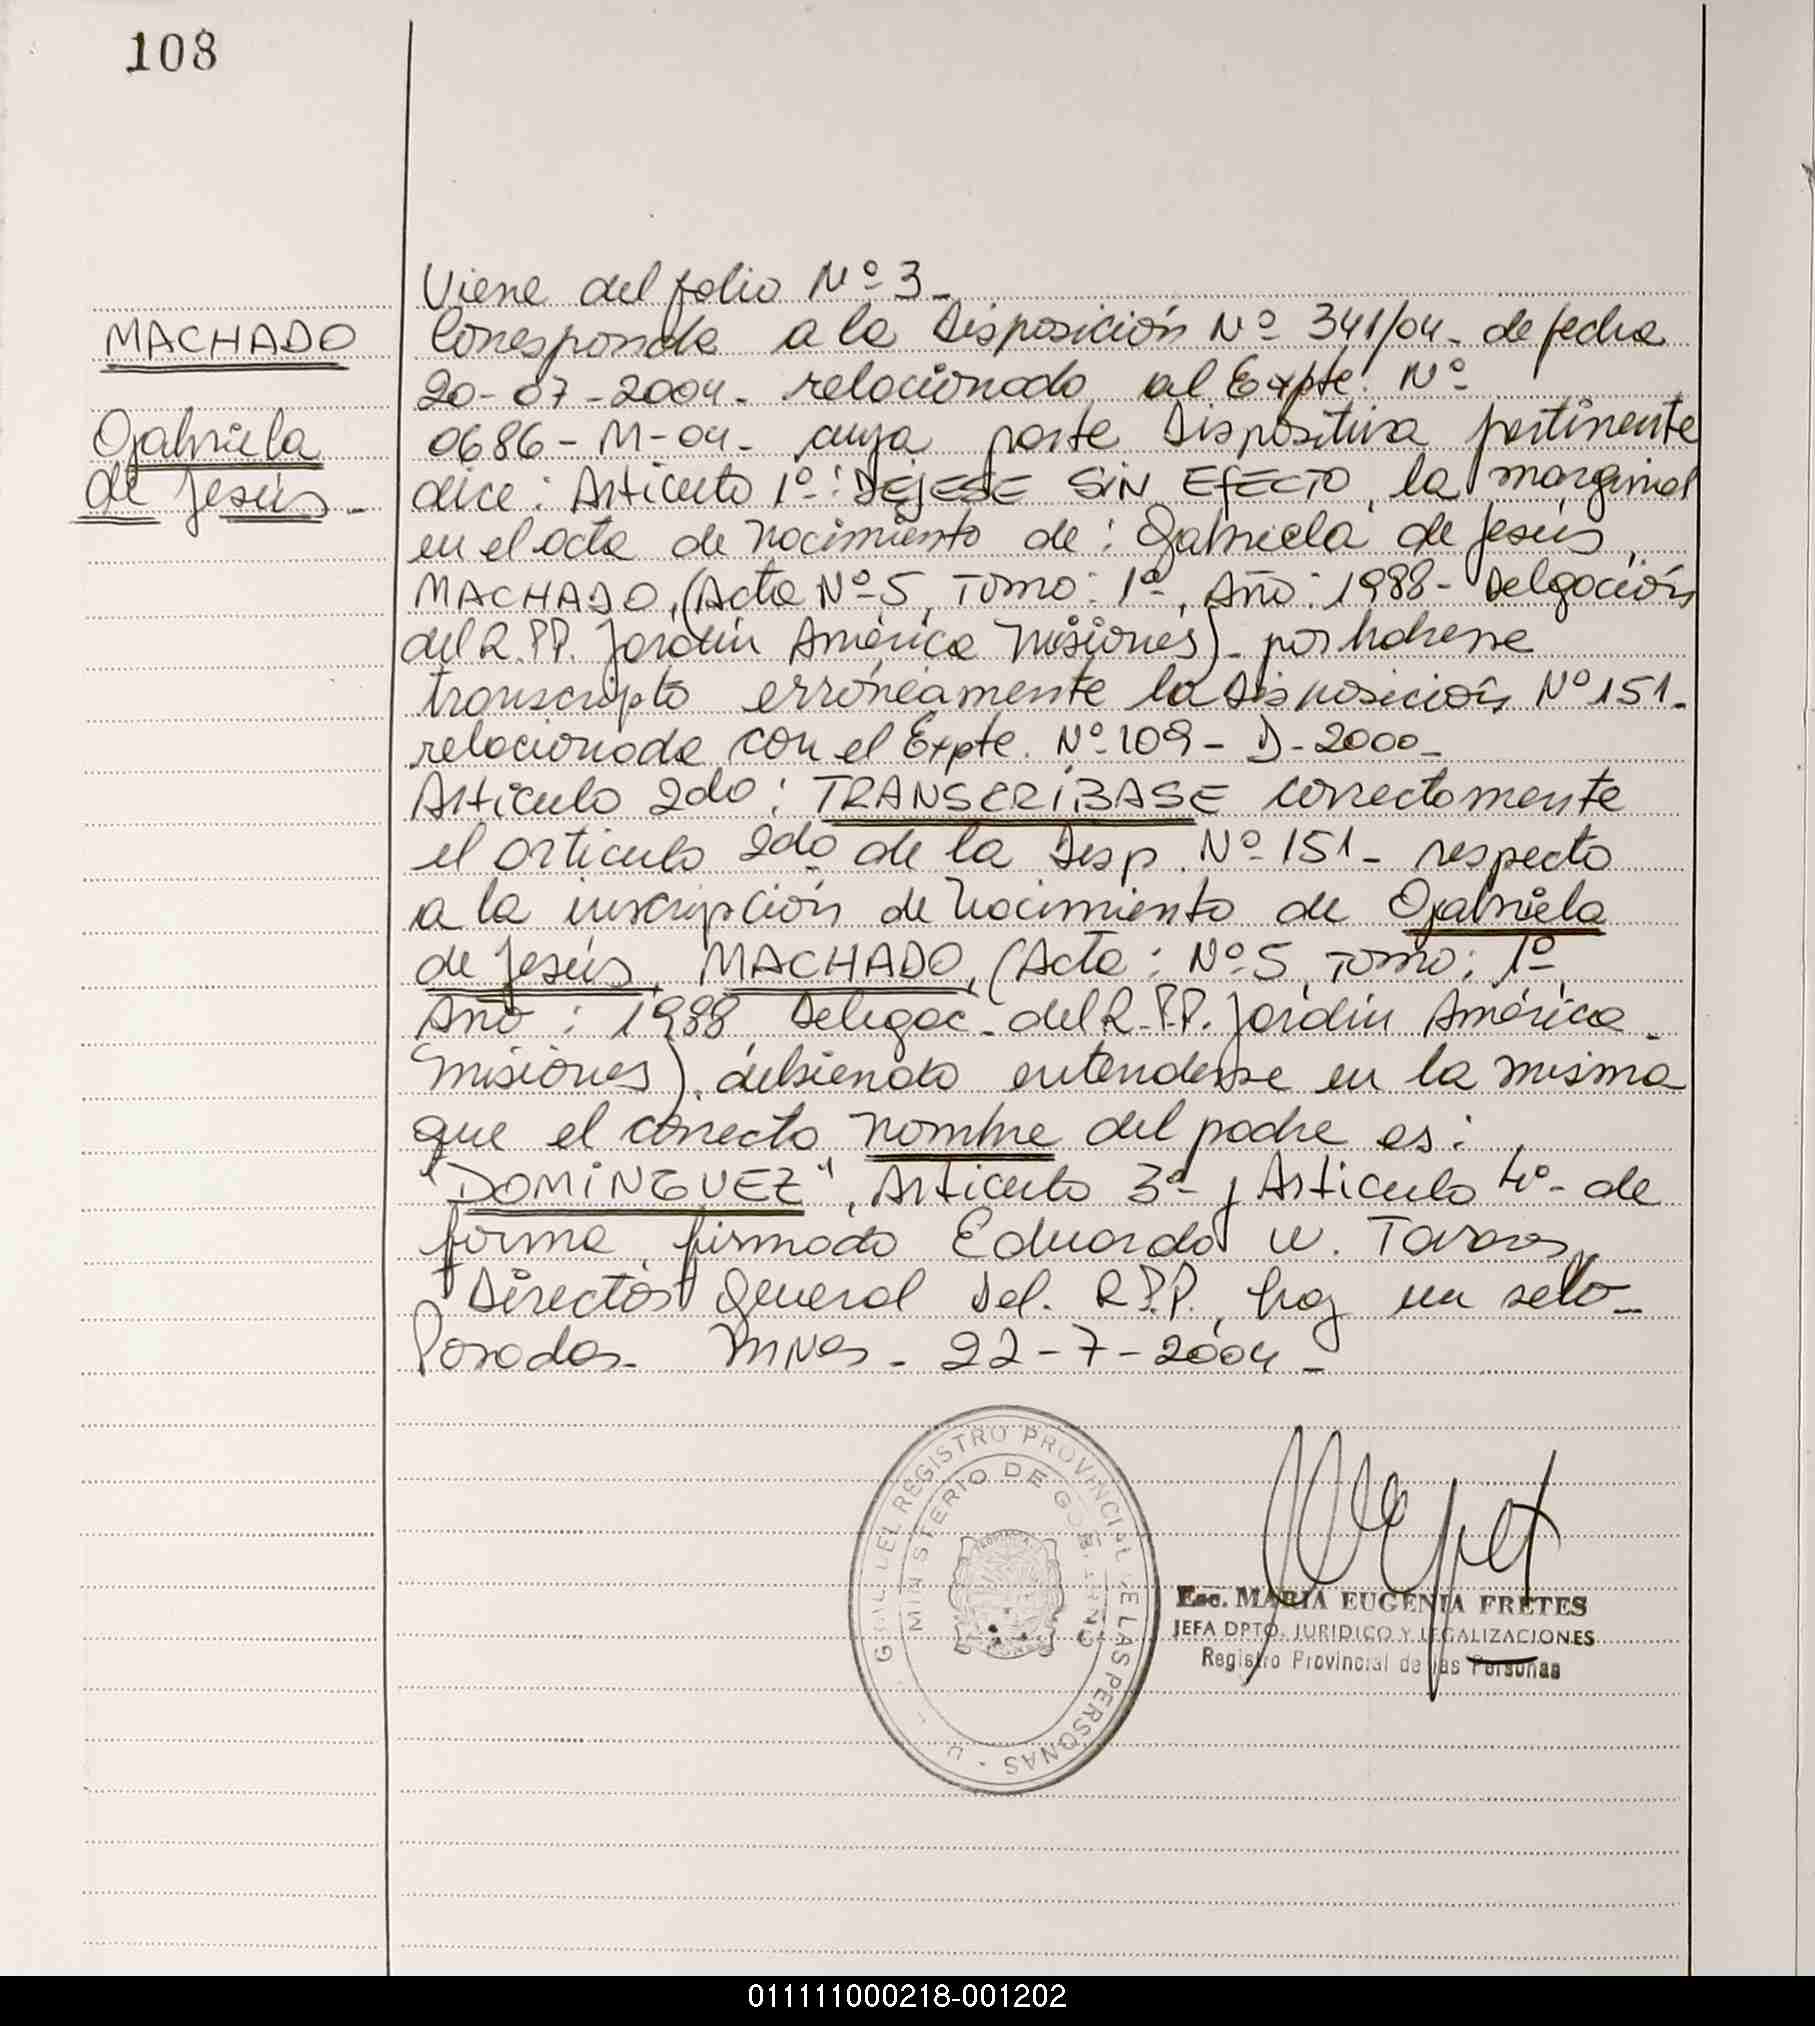 108
MACHADO
Gabriela
de Jesús -
Viene del folio Nº 3 -
Corresponde a la Disposición Nº 341/04 - de fecha
20-07-2004 - relacionado al Expte. Nº
0686 - M-04 - cuya parte Dispositiva pertinente
dice: Artículo 1º: DEJESE SIN EFECTO, la marginal
en el acta de nacimiento de: Gabriela de Jesús
MACHADO, (Acta Nº 5, Tomo: 1º, Año: 1988 - Delgación
del R.P.P. Jardín América Misiones) - por haberse
transcripto erróneamente la Disposición Nº 151 -
relacionada con el Expte. Nº 109 - D - 2000 -
Articulo 2do: TRANSCRÍBASE correctamente
el articulo 2do de la Disp. Nº 151 - respecto
a la inscripción de nacimiento de Gabriela
de Jesús MACHADO, (Acta: Nº 5, Tomo: 1º,
Año: 1988, Delegac. del R.P.P. Jardín América -
Misiones), debiendo entenderse en la misma
que el correcto nombre del padre es:
"DOMINGUEZ", Artículo 3º, Artículo 4º - de
forma firmado Eduardo W.
Director General Del. R.P.P. hay un sello -
Posadas - Mnes - 22-7-2004 -
GRAL DEL REGISTRO PROVINCIAL DE LAS PERSONAS -
MINISTERIO DE GOBIERNO
Esc. MARIA EUGENIA FRETES
JEFA DPTO. JURIDICO Y LEGALIZACIONES
Registro Provincial de las Personas
011111000218-001202